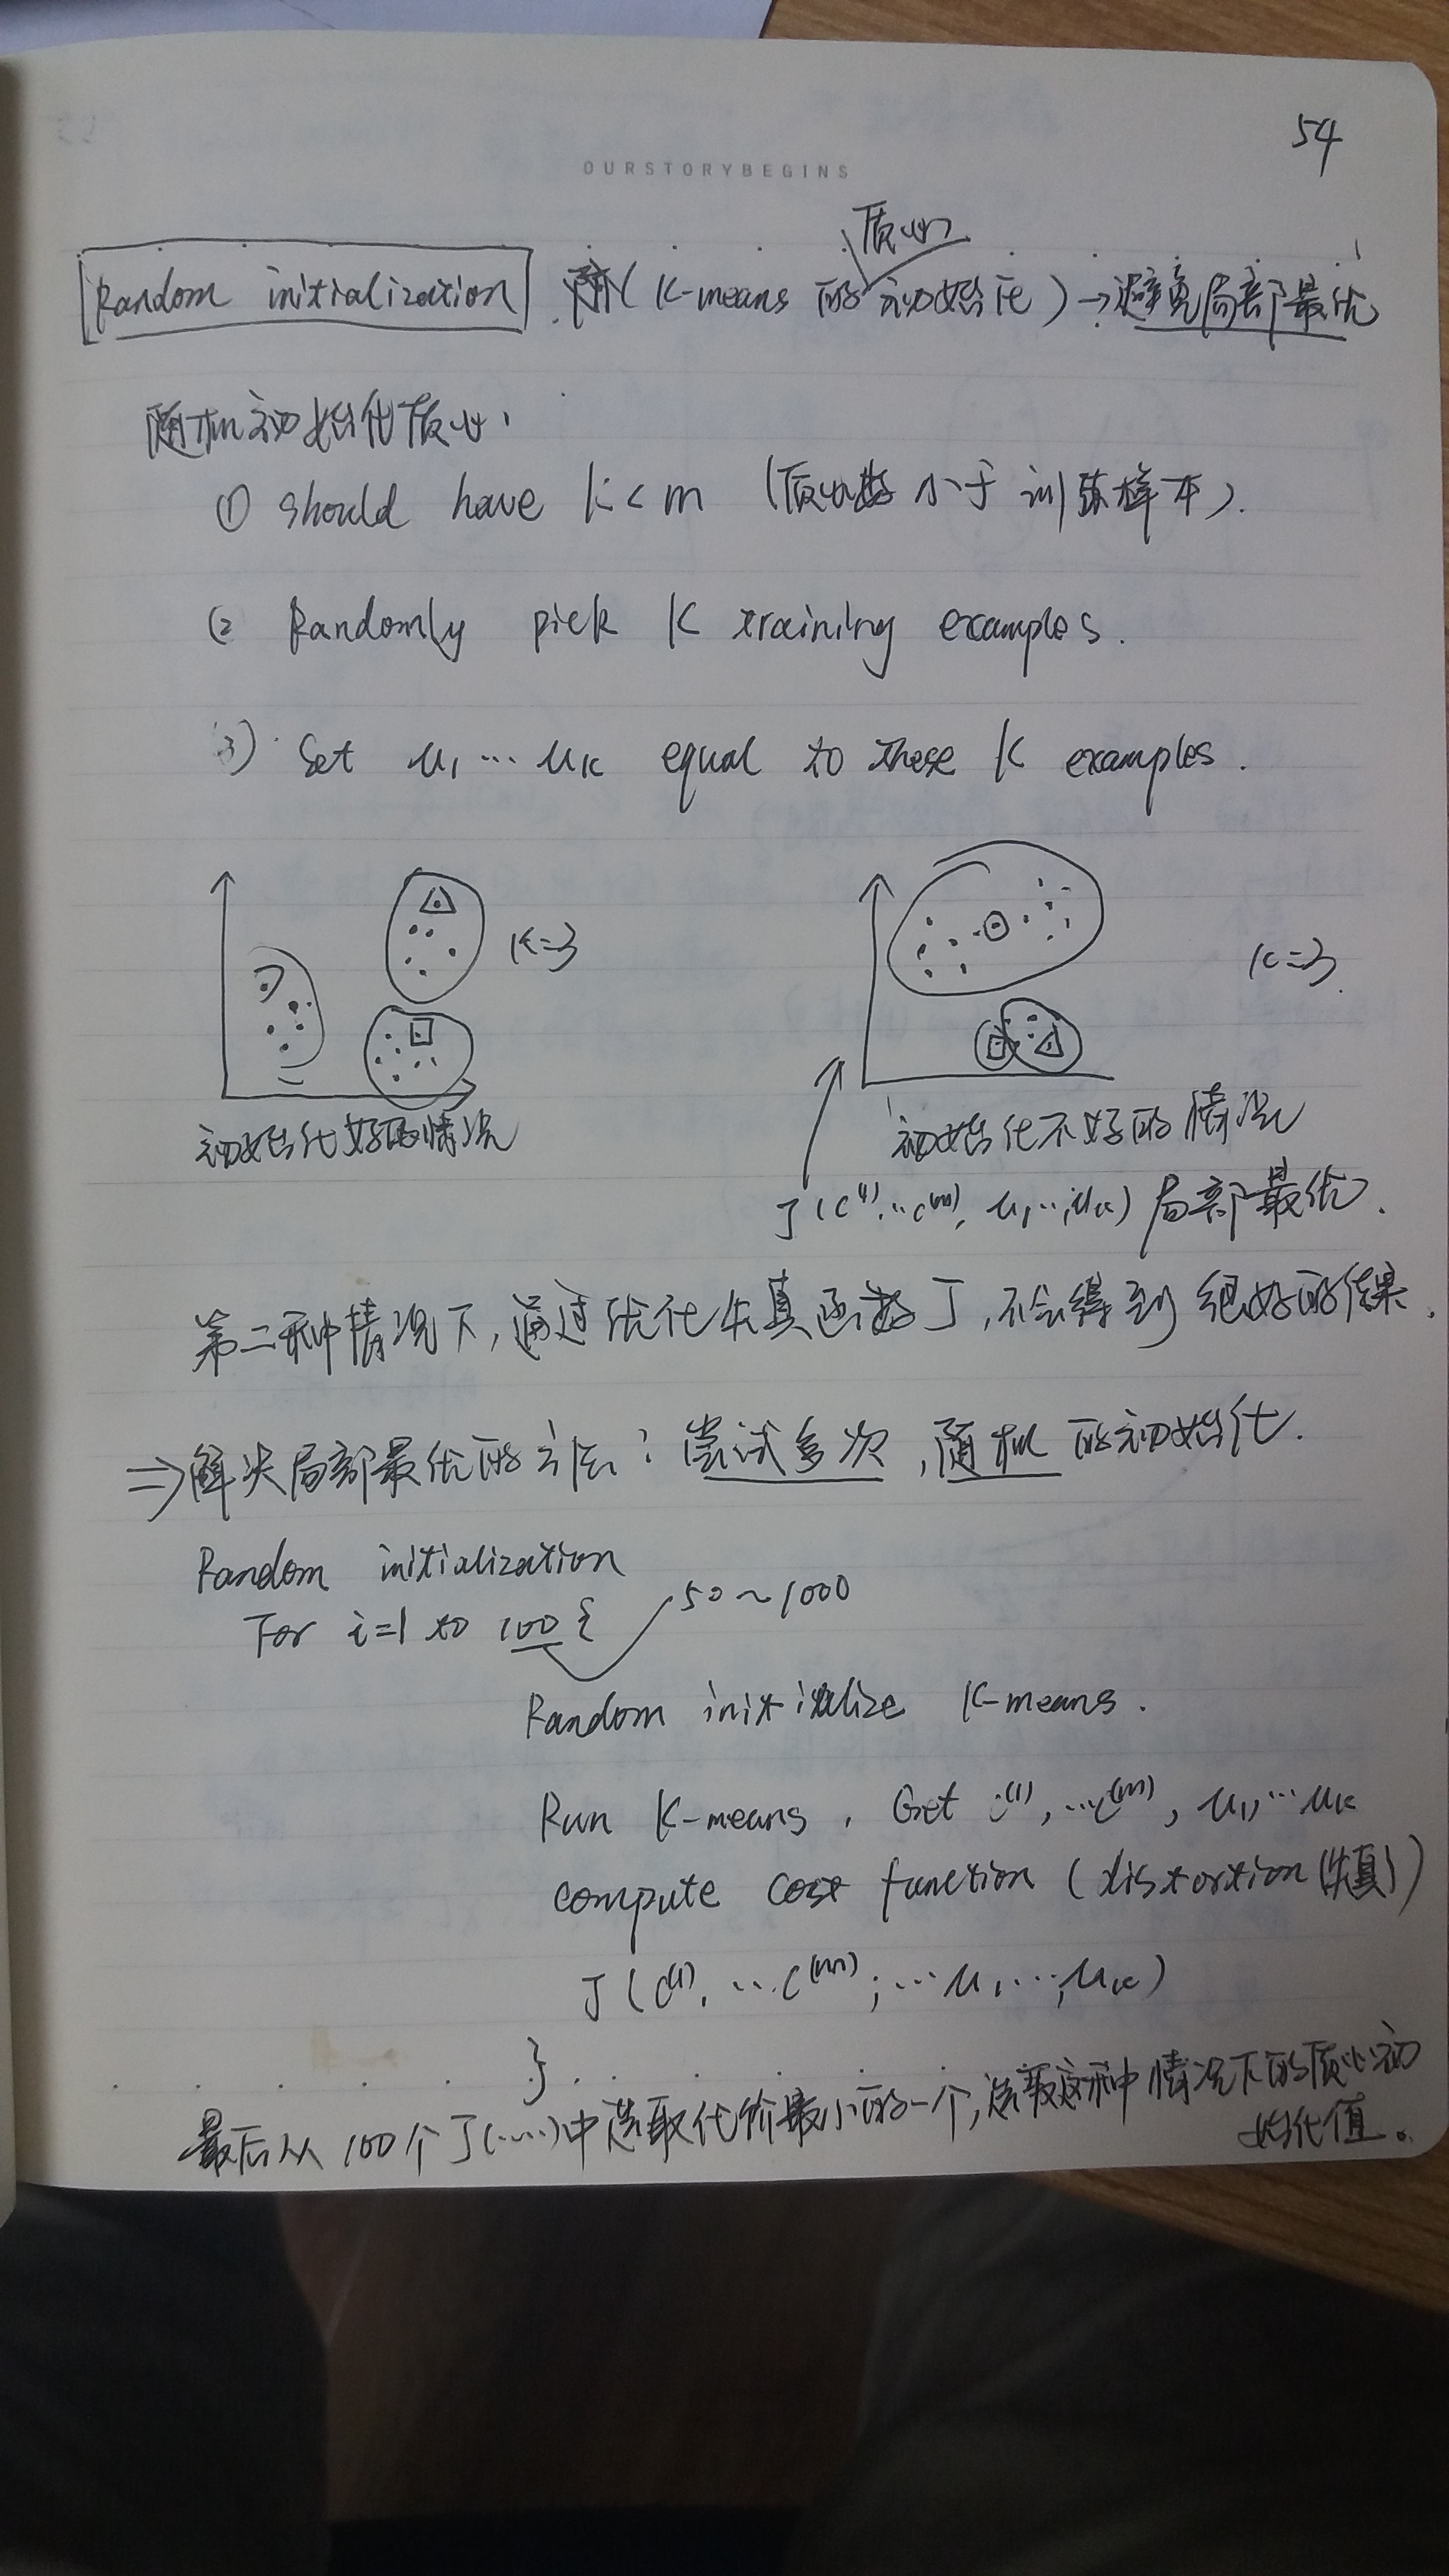 54
OURSTORYBEGINS
质心
Random initialization (K-means 的初始化) →避免局部最优
随机初始化质心:
① should have K<m (质心数小于训练样本).
② Randomly pick K training examples.
③ Set μ₁ ... μK equal to these K examples.
K=3
K=3
初始化好的情况
初始化不好的情况
J(c⁽¹⁾,..c⁽ᵐ⁾, μ₁..,μK) 局部最优.
第二种情况下,通过优化失真函数J,不会得到很好的结果.
⇒解决局部最优的方法:尝试多次,随机的初始化.
Random initialization
For i=1 to 100 { 50~1000
Random initialize K-means.
Run K-means. Get c⁽¹⁾,...c⁽ᵐ⁾, μ₁,...μK
compute cost function (distortion(失真))
J(c⁽¹⁾, ...c⁽ᵐ⁾; ...μ₁, ...,μK)
}
最后从100个J(.....)中选取代价最小的一个,选取这种情况下的质心初
始化值。